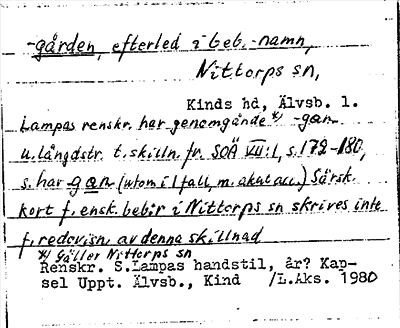 -gården, efterled i beb.-namn,
Nittorps sn,
Kinds hd, Älvsb. l.
Lampas renskr. har genomgående *) -gan
u. längdstr. t. skilln. fr. SOÄ VII:1, s. 179-180,
s. har gan (utom i 1 fall, m. akut acc.) Särsk.
kort f. ensk. beb:r i Nittorps sn skrives inte
f. redovisn. av denna skillnad
*) Gäller Nittorps sn
Renskr. S.Lampas handstil, år? Kap-
sel Uppt. Älvsb., Kind /L.Aks. 1980